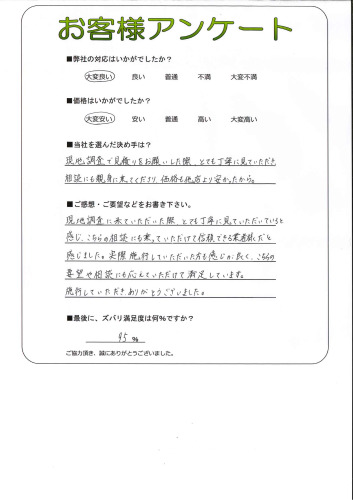 お客様アンケート
■弊社の対応はいかがでしたか？
大変良い 良い 普通 不満 大変不満
■価格はいかがでしたか？
大変安い 安い 普通 高い 大変高い
■当社を選んだ決め手は？
現地調査で見積りをお願いした際、とても丁寧に見ていただき
相談にも親身に来てくださり、価格も他店より安かったから。
■ご感想・ご要望などをお書き下さい。
現地調査に来ていただいた際、とても丁寧に見ていただいていると
感じ、こちらの相談にも乗っていただけて信頼できる業者様だと
感じました。実際施行していただいた方も感じが良く、こちらの
要望や相談にも応えていただけて満足しています。
施行していただきありがとうございました。
■最後に、ズバリ満足度は何％ですか？
95 %
ご協力頂き、誠にありがとうございました。